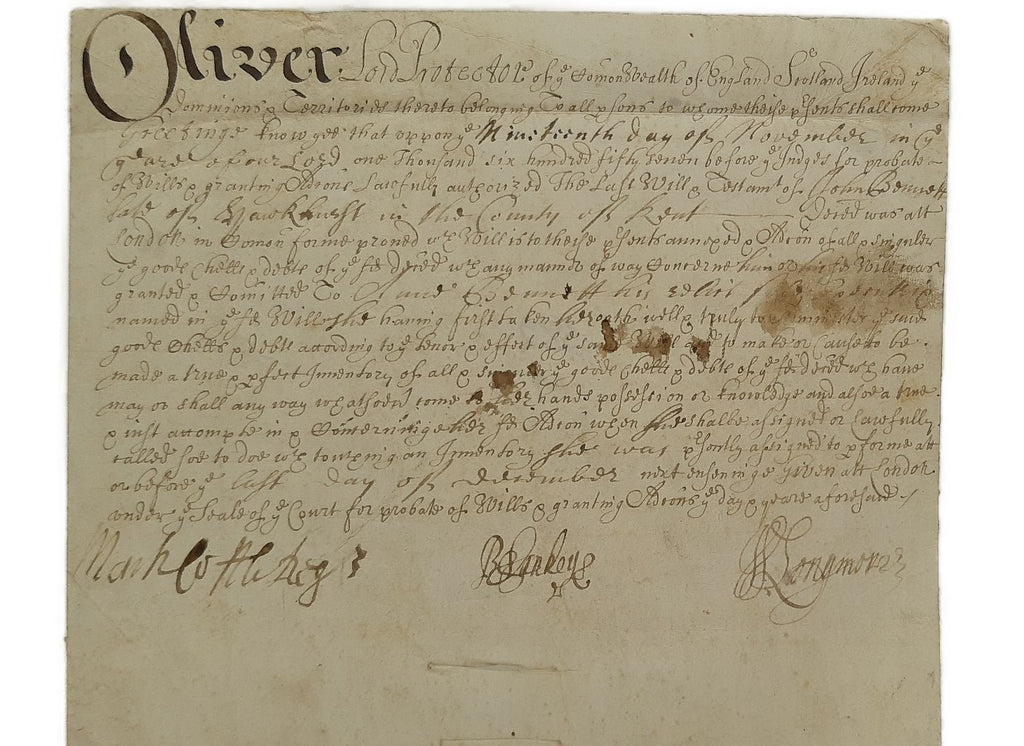 Oliver Lord Protector of ye Comonwealth of England Scotland Ireland ye
Dominions & Territories thereto belonging To all psons to whome theise psents shall come
Greetinge know yee that uppon ye Nineteenth day of November in ye
yeare of our Lord one Thousand six hundred fifty seven before ye Judges for probate
of Wills & granting Adcons Lawfully authorized The Last Will & Testamt of John Bennett
late of Hawkhurst in the County of Kent Deced was att
London in Comon forme proved wch Will is to theise psents annexed & Adcon of all & singuler
ye goods Chells & debts of ye sd deced wch any manner of way Concerne him or his sd Will was
granted & Comitted To Bennett his relict
named in ye sd Will she having first taken her oath well & truly to ye said
goods Chells & debts according to ye tenor & effect of ye said Will and to make or Cause to be
made a true & pfect Inventory of all & ye goods Chells & debts of ye sd deced wch have
may or shall any way whatsoever come to her hands possession or knowledge and alsoe a true
& just accompte in & Concerninge her sd Adcon when she shalbe assigned or Lawfully
called soe to doe wch touching an Inventory she was psently assigned to pforme att
or before ye last day of December next enseuinge Given att London
under ye Seale of ye Court for probate of Wills & granting Adcons ye day & yeare aforesaid
Mark Cottle Regr
Longmore